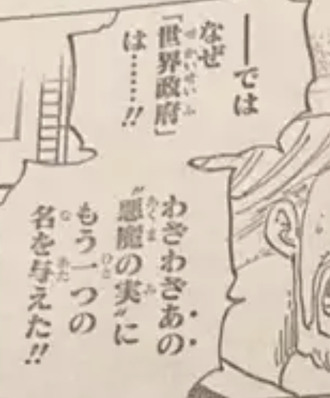 ──では
なぜ
「世界政府」
は………!!
わざわざあの
〝悪魔の実〟に
もう一つの
名を与えた!!